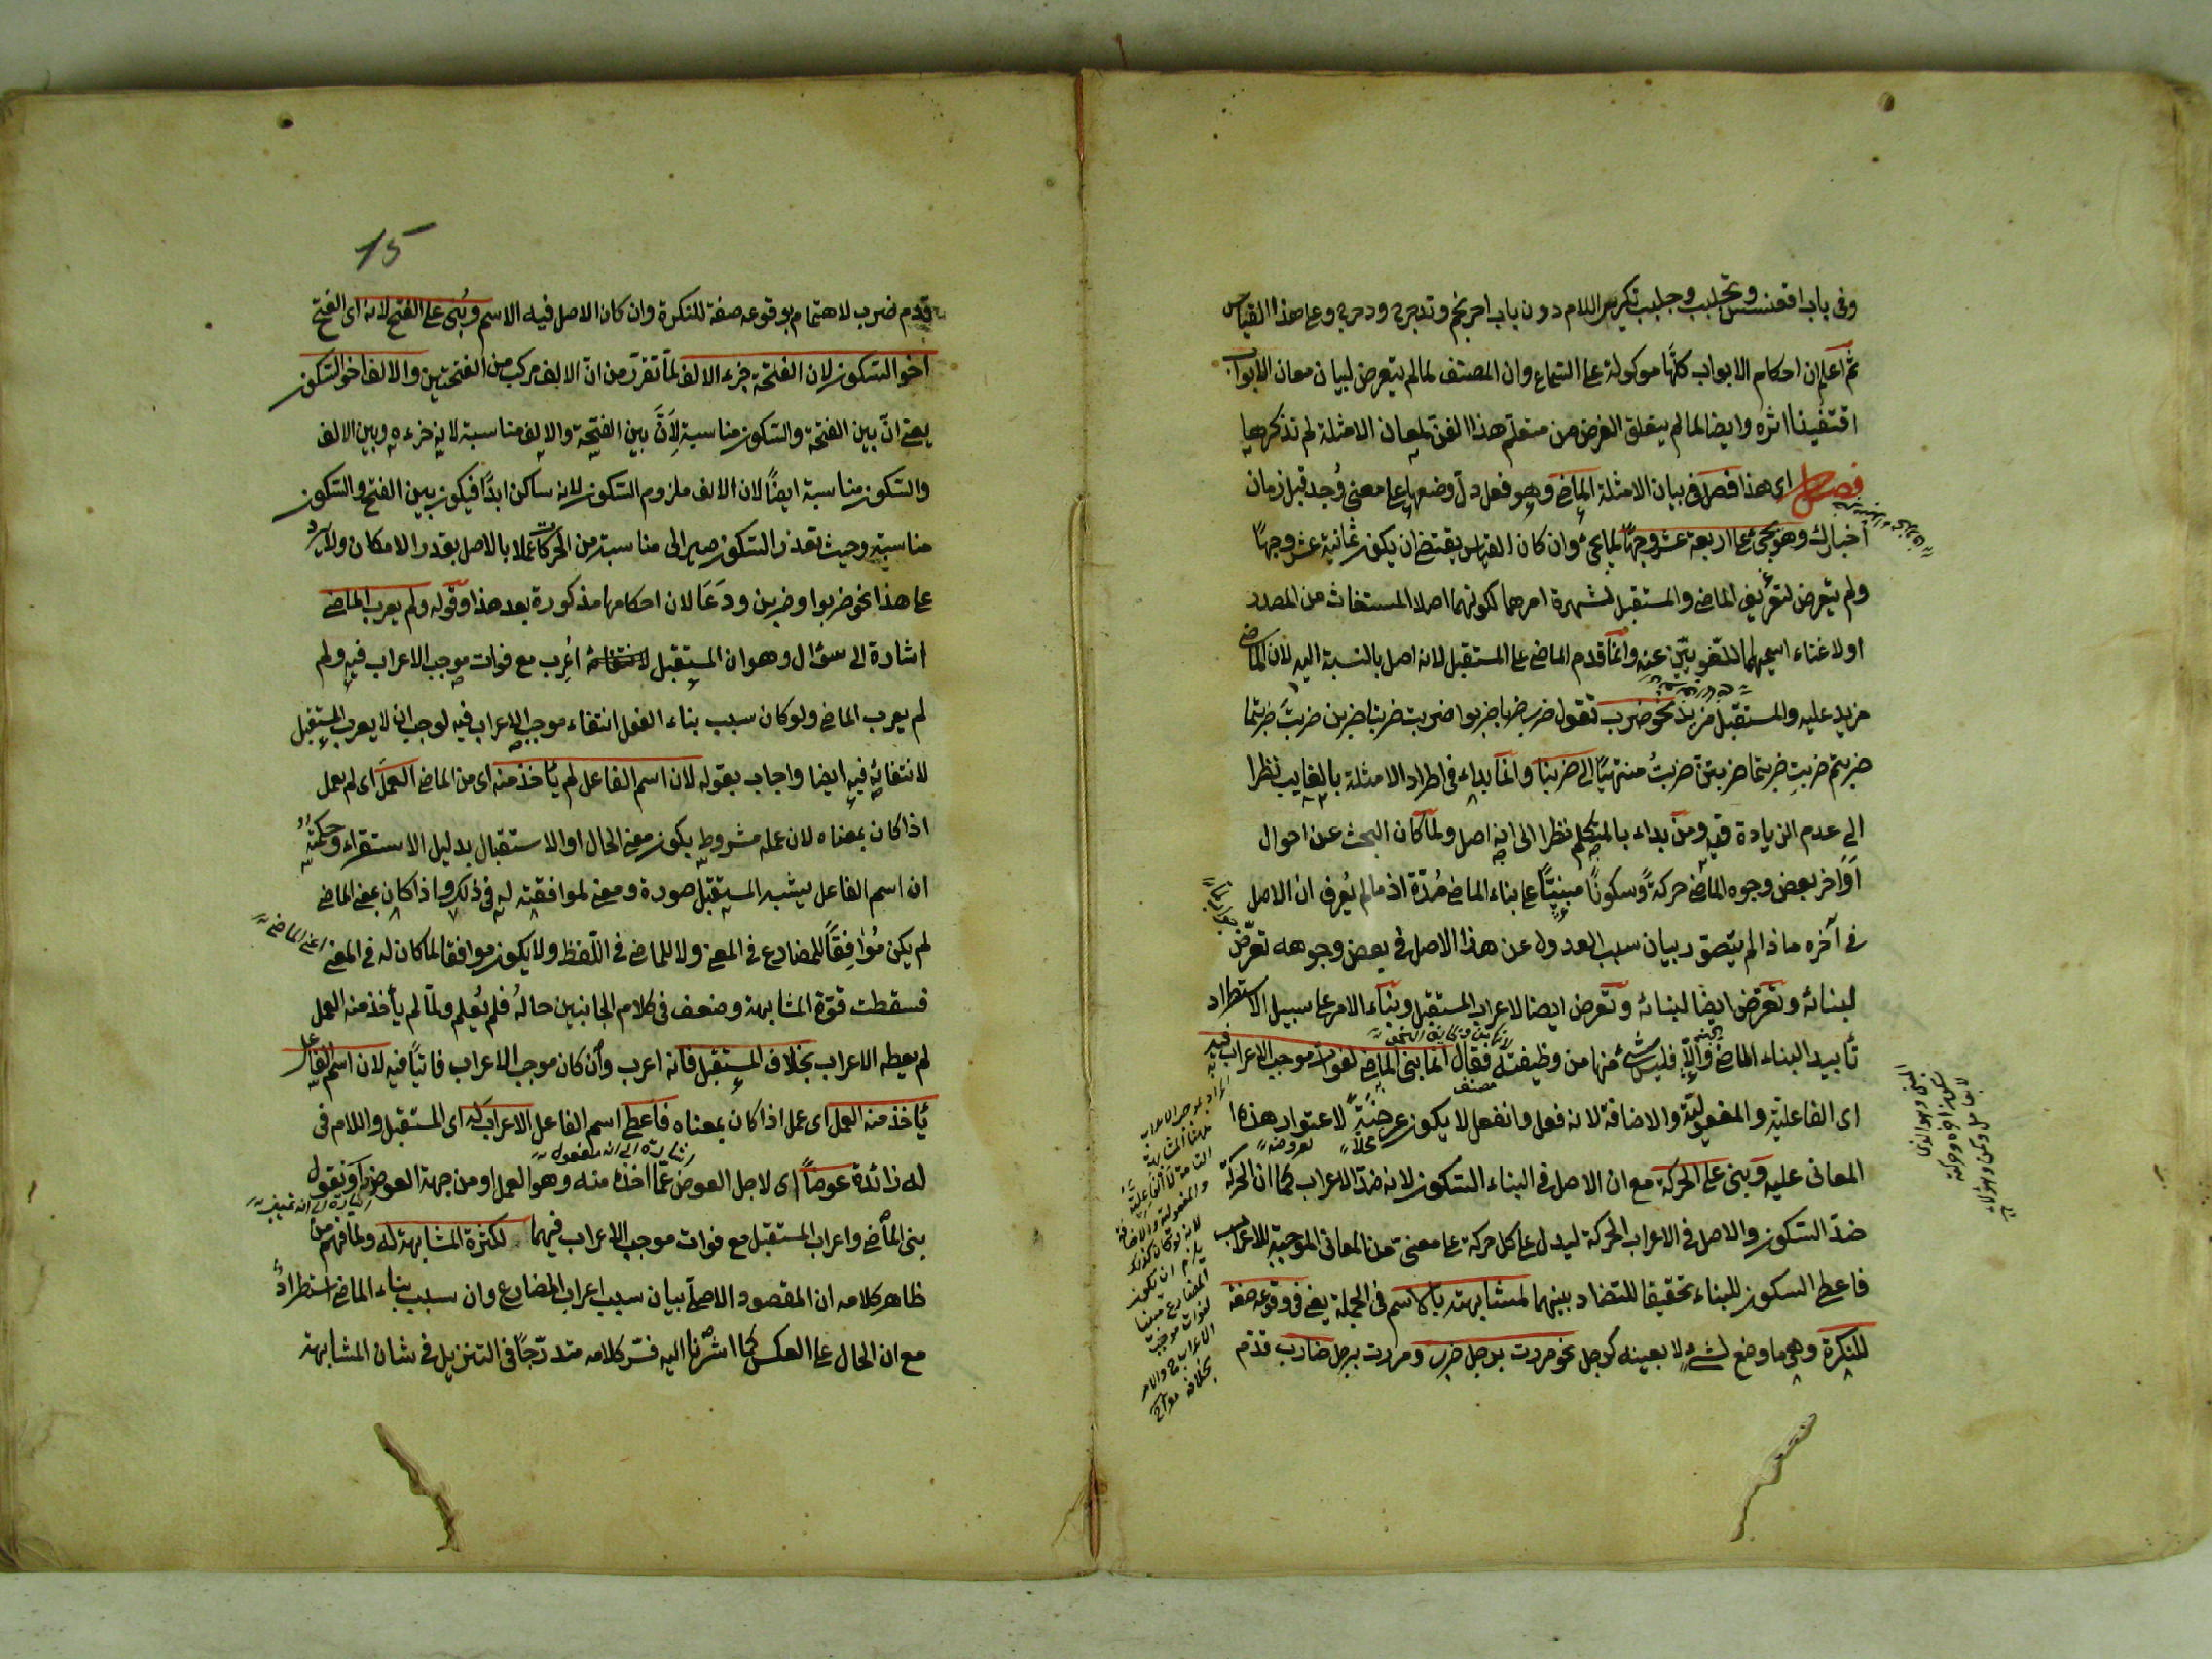 وفى باب اقعنسس وتجلبب وجلبب تكرير اللام دون باب احرنجم وتدحرج ودحرج وعلى هذا القياس
ثم اعلم ان احكام الابواب كلها موكولة على السماع وان المصنف لما لم يتعرض لبيان معان الابواب
اقتفينا اثره وايضا لما لم يتعلق الغرض من متعلم هذا الفن لمعان الامثلة لم نذكرها
فصل اى هذا فصل فى بيان الامثلة الماضى وهو فعل دل وضعها على معنى وُجد قبل زمان
اخبارك وهو يجئ على اربعة عشر وجهًا لما يجئ وان كان القياس يقتضى ان يكون ثمانية عشر وجهًا
ولم يتعرض لتعريف الماضى والمستقبل لشهرة امرهما لكونهما اصلا المستغاث من المصدر
اولا غناء اسميهما اللغويين عنه وانما قدم الماضى على المستقبل لانه اصل بالنسبة اليه لان الماضى
مزيد عليه والمستقبل مزيد نحو ضرب تقول ضرب ضربا ضربوا ضربت ضربتا ضربن ضربتَ ضربتما
ضربتم ضربتِ ضربتما ضربتنّ ضربتُ منتهيًا الى ضربنا وانما بداء فى اطراد الامثلة بالغايب نظرا
الى عدم الزيادة فيه ومن بداء بالمتكلم نظرا الى انه اصل ولما كان البحث عن احوال
اواخر بعض وجوه الماضى حركةً وسكونًا مبنيًّا على بناء الماضى مُرّة اذ ما لم يُعرف ان الاصل
فى آخره ماذا لم يتصور بيان سبب العدول عن هذا الاصل فى بعض وجوهه تعرّض
لبنائه وتعرّض ايضًا لبنائه وتعرض ايضا لاعراب المستقبل وبناء الامر على سبيل الاستطراد
تأبيد البناء الماضى والّا فليس شئ منها من وظيفته فقال انما بنى الماضى لفوات موجب الاعراب فيه
اى الفاعلية والمفعولية والاضافة لانه فعل وانفعل لا يكون عرضةً لاعتوار هذه
المعانى عليه وبنى على الحركة مع ان الاصل فى البناء السكون لانه ضدّ الاعراب كما ان الحركة
ضدّ السكون والاصل فى الاعراب الحركة ليدل على كل حركة على معنى من المعانى الموجبة للاعراب
فاعطى السكون للبناء تحقيقا للتضاد بينهما لمشابهته بالاسم فى الجملة يعنى فى وقوعه صفة
للنكرة وهى ما وضع لشئ لا بعينه كرجل نحو مررت برجل ضرب ومررت برجل ضارب قدّم
15
قدم ضرب لاهتمام بوقوعه صفة للنكرة وان كان الاصل فيه الاسم وبُنى على الفتح لانه اى الفتح
اخو السكون لان الفتحة جزء الالف لما تقرّر من انّ الالف مركب من الفتحتين والالف اخو السكون
يعنى انّ بين الفتحة والسكون مناسبة لِاَنَّ بين الفتحة والالف مناسبة لانه جزءه وبين الالف
والسكون مناسبة ايضًا لان الالف ملزوم السكون لانه ساكن ابدًا فيكون بين الفتح والسكون
مناسبة وحيث تعذر السكون صير الى مناسبته من الحركات عملا بالاصل بقدر الامكان ولا يرد
على هذا نحو ضربوا وضربن ودَعَا لان احكامها مذكورة بعد هذا وقوله ولم يعرب الماضى
اشارة الى سؤال وهو ان المستقبل اُعْرِب مع فوات موجب الاعراب فيه ولم
لم يعرب الماضى ولو كان سبب بناء الفعل انتفاء موجب الاعراب فيه لوجب ان لا يعرب المستقبل
لانتفائه فيه ايضا واجاب بقوله لان اسم الفاعل لم يأخذ منه اى من الماضى العملَ اى لم يعمل
اذا كان بمعناه لان عمله مشروط بكون معنى الحال او الاستقبال بدليل الاستقراء وحكمته
ان اسم الفاعل يشبه المستقبل صورة ومعنى لموافقته له فى ذلك واذا كان بمعنى الماضى
لم يكن مُوافِقًا للمضارع فى المعنى ولا للماضى فى اللّفظ ولا يكون موافقا لما كان له فى المعنى اعنى الماضى
فسقطت قوّة المشابهة وضعف فى كلام الجانبين حالهُ فلم يُعلم ولمّا لم يأخذ منه العمل
لم يعطه الاعراب بخلاف المستقبل فانه اعرب وان كان موجب الاعراب فاتيًا فيه لان اسم الفاعل
يأخذ منه العمل اى عمل اذا كان بمعناه فاعطى اسم الفاعل الاعراب له اى المستقبل واللام فى
اشارة الى انه مفعول له
له زائدة عوضاً اى لاجل العوض عمّا اخذه منه وهو العمل او من جهة العوض او نقول
اشارة الى انه تمييز
بنى الماضى واعراب المستقبل مع فوات موجب الاعراب فيهما لكثرة المشابهة له ولما فهم من
ظاهر كلامه ان المقصود الاصلى بيان سبب اعراب المضارع وان سبب بناء الماضى استطرادٌ
مع ان الحال على العكس كما اشرنا اليه فسّر كلامه متدرّجًا فى التنزيل فى شان المشابهة